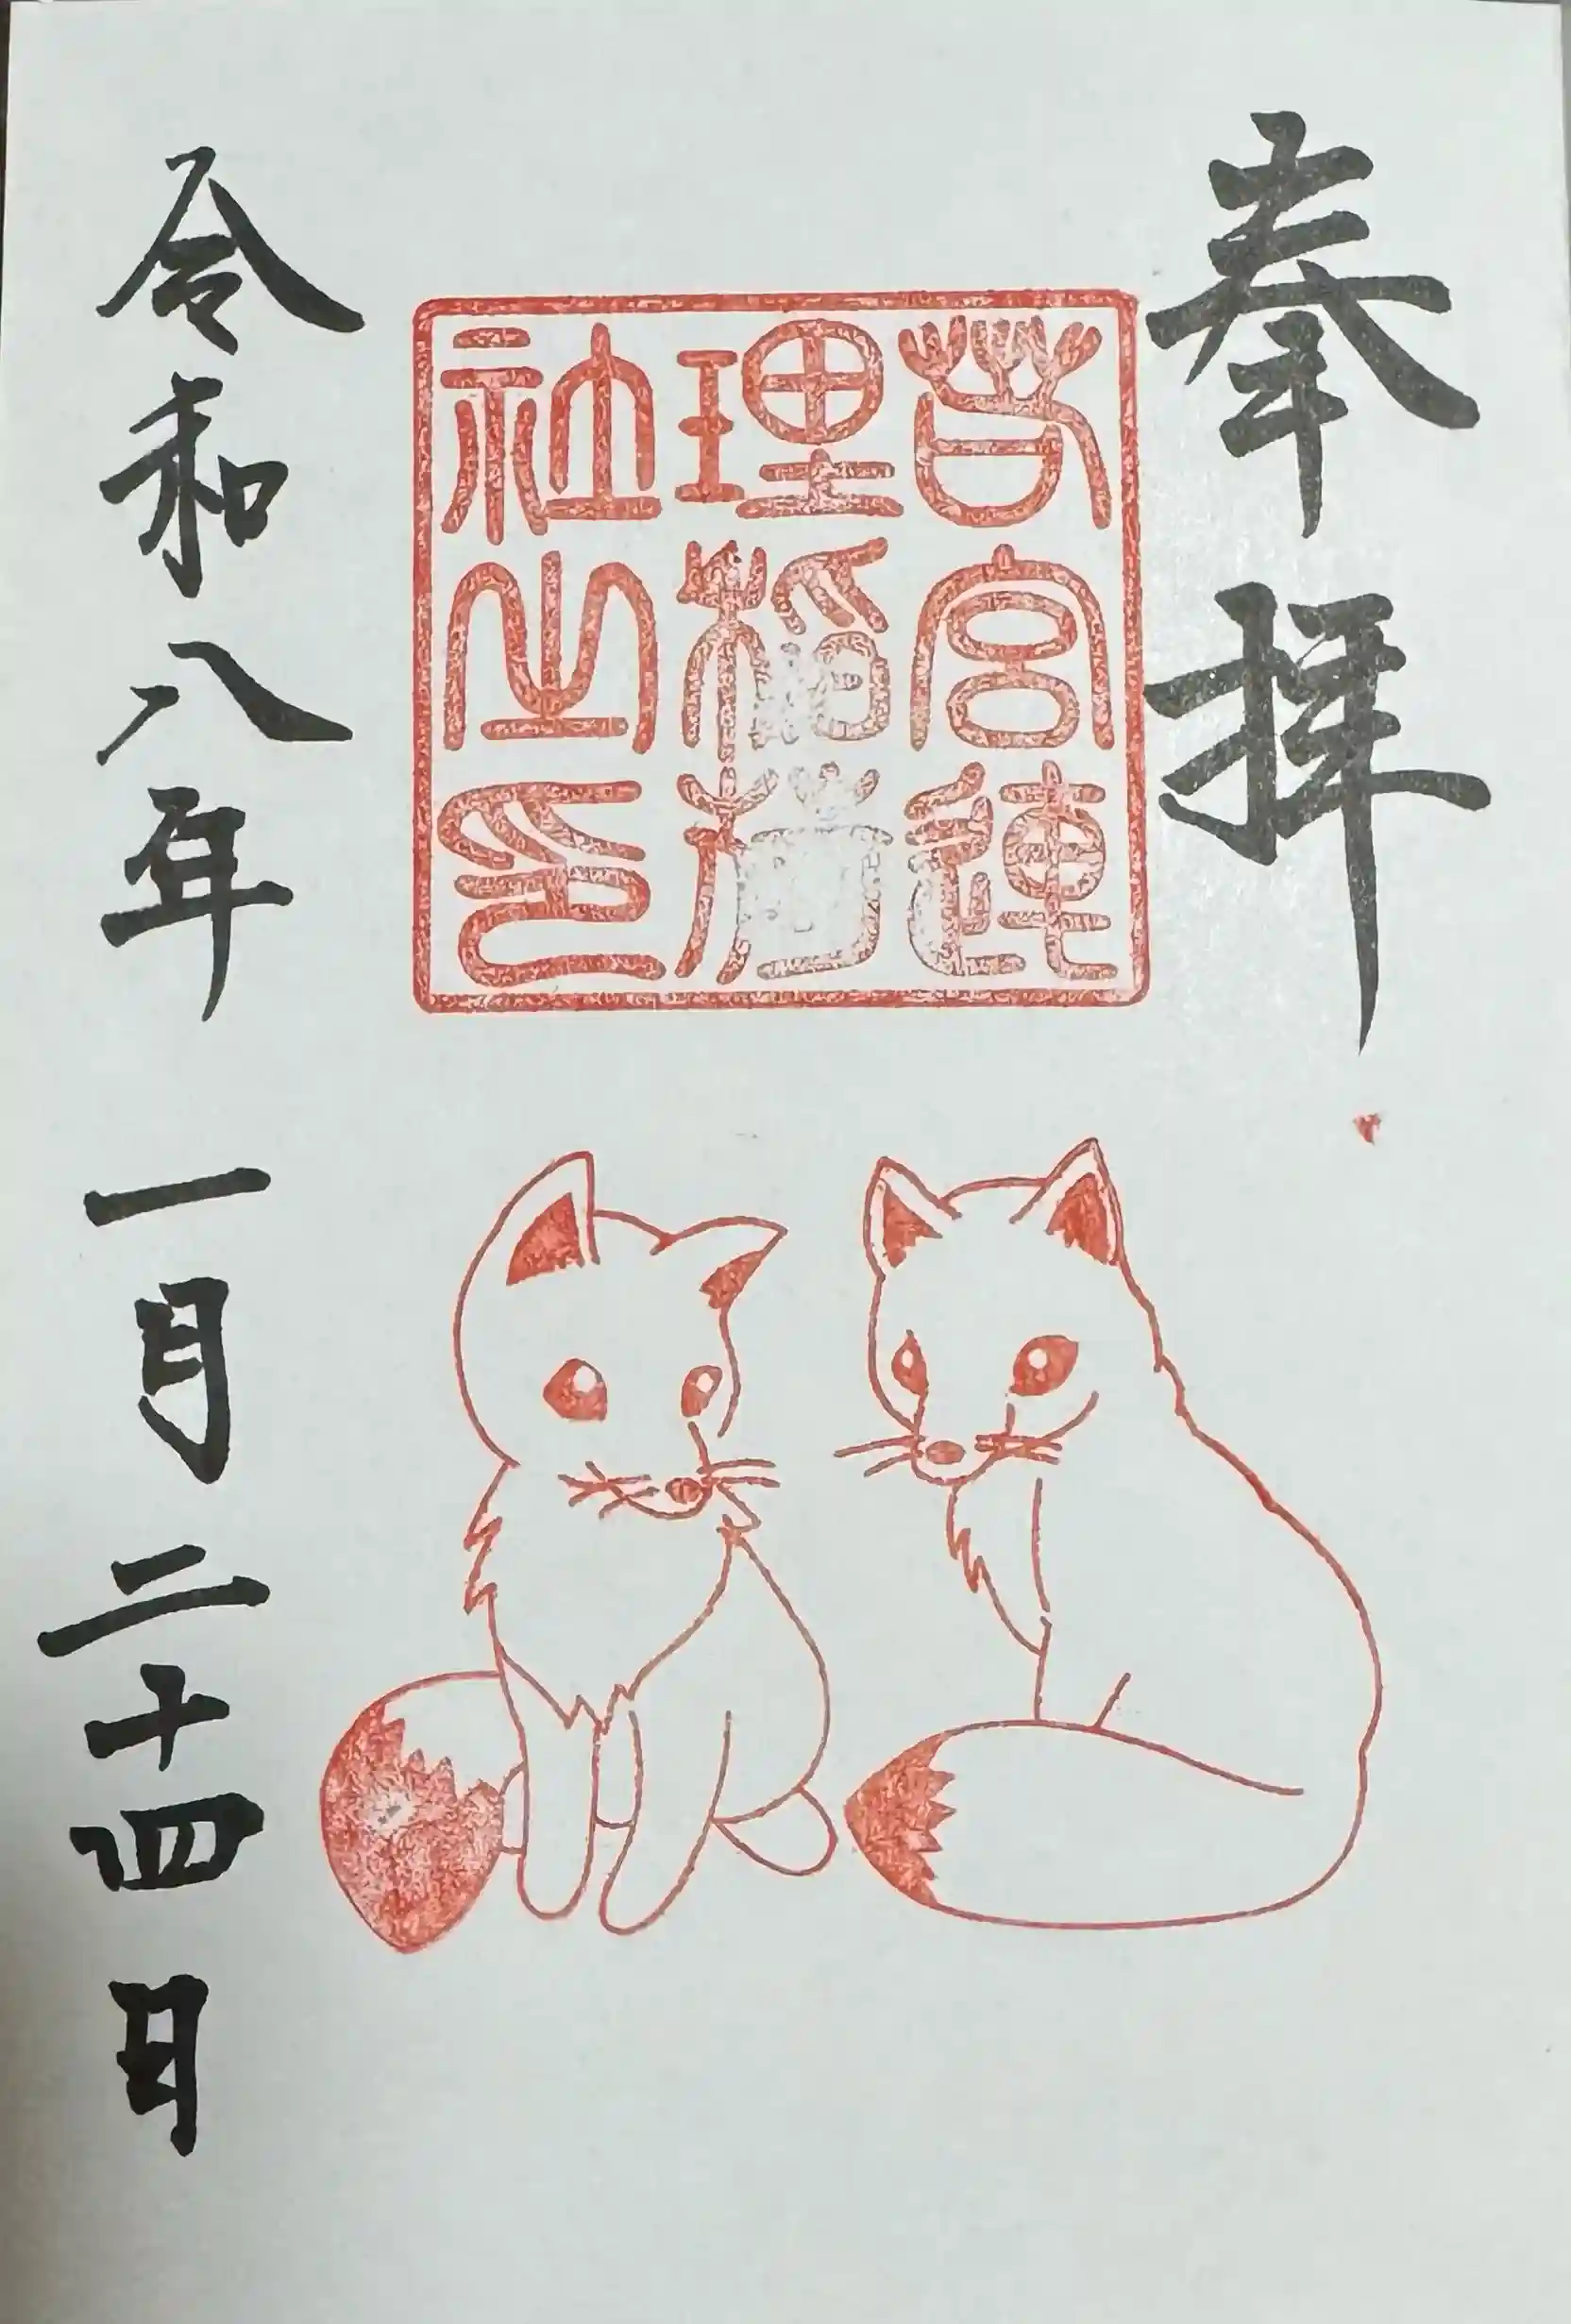 奉拝
若宮連
理稲荷
社之印
令和八年一月二十四日